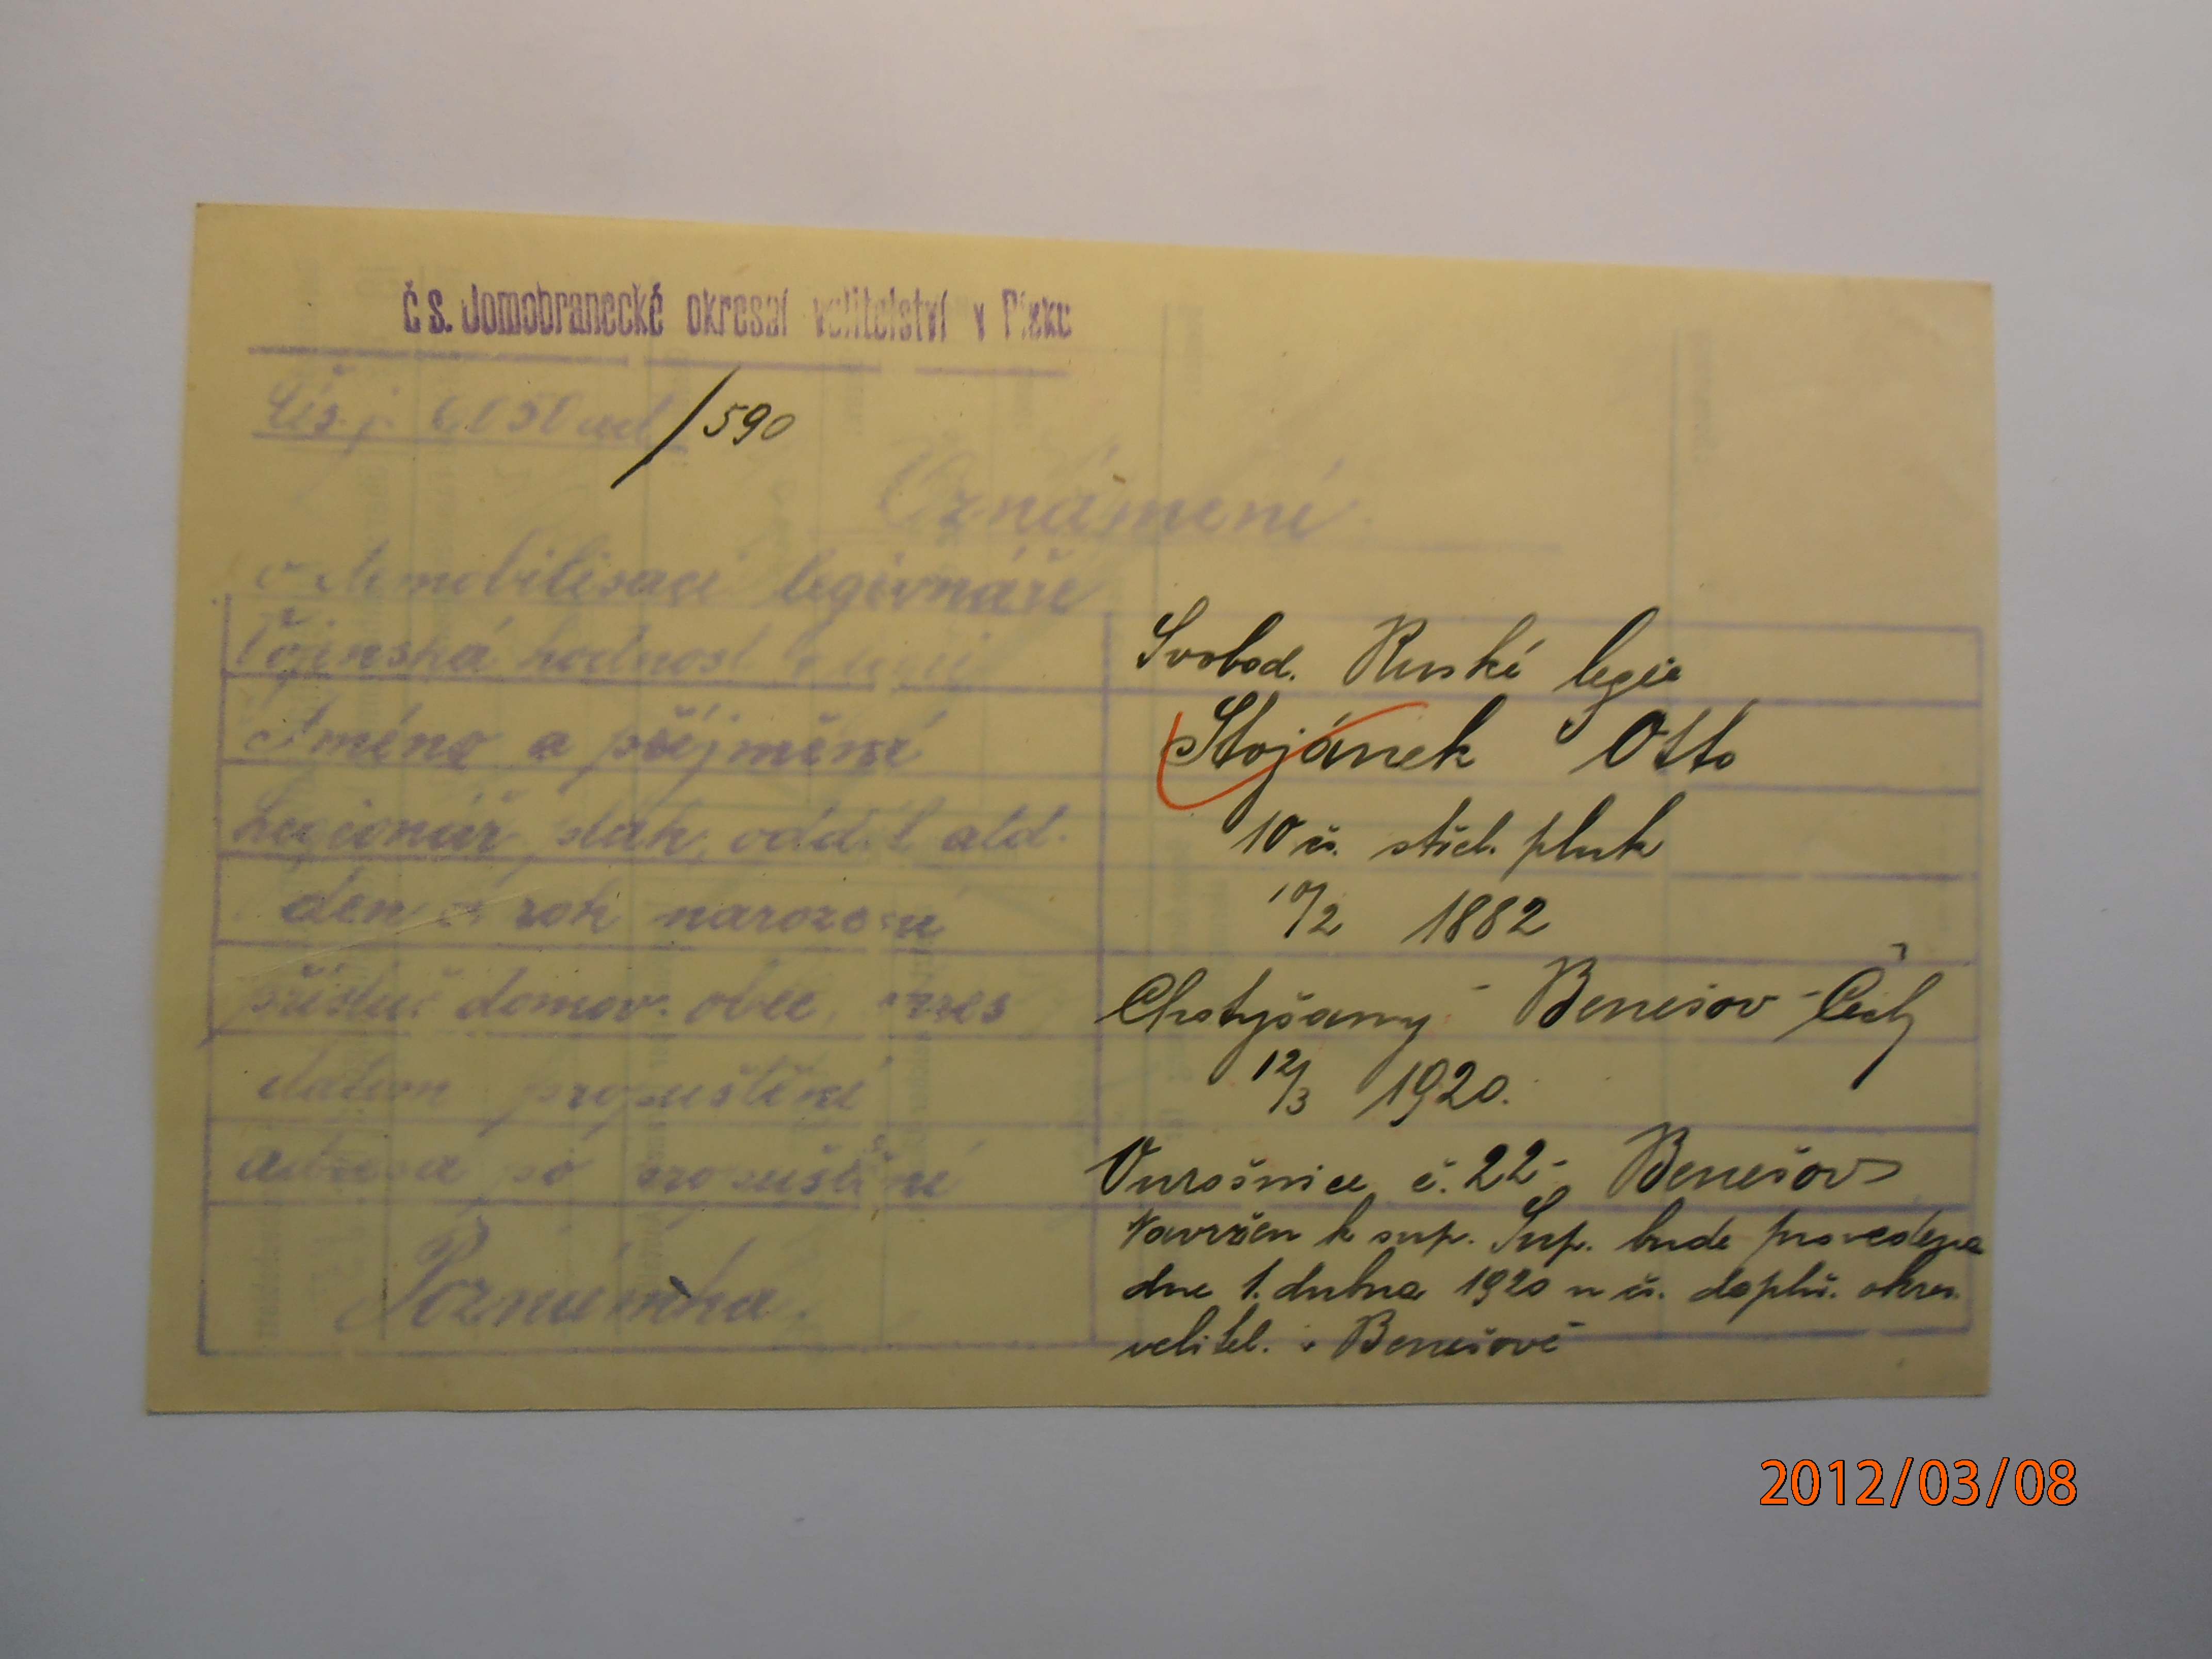 Čs. Domobranecké okresní velitelství v Písku
Čís. j. 6050 ad /590
Oznámení
o demobilisaci legionáře
Vojenská hodnost v legii Svobod. Ruské legie
Jméno a příjmení Stojánek Otto
Legionář. pluk, oddíl atd. 10 čs. střel. pluk
den a rok narození 10/2 1882
přísluš. domov. obec, okres Chotýšany - Benešov - Čechy
datum propuštění 12/3 1920.
adresa po propuštění č. 22 - Benešov
Poznámka Navržen k sup. Sup. bude provedena
dne 1. dubna 1920 u čs. doplň. okres.
velitel. v Benešově
2012/03/08